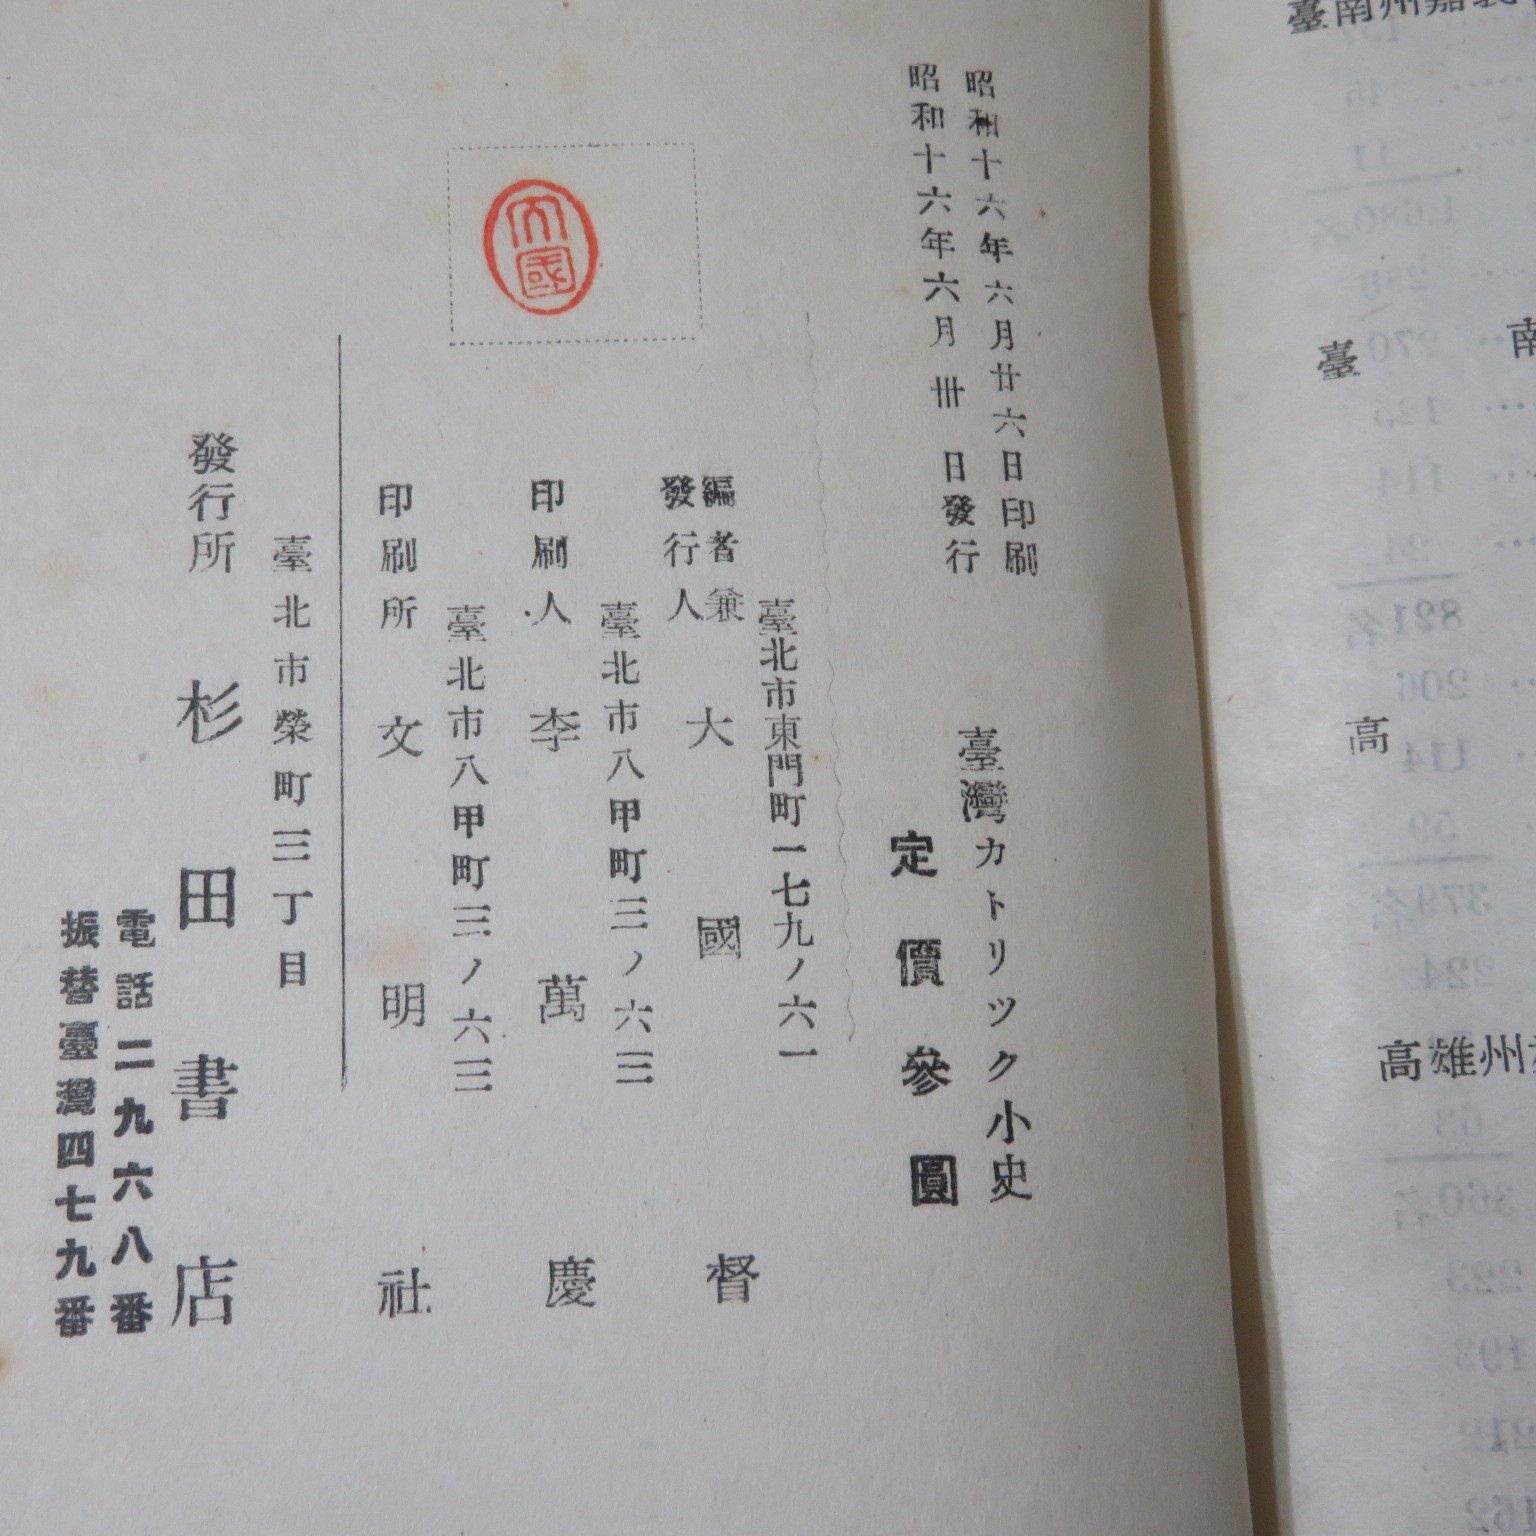 臺南州嘉義
南
臺
高
高雄州
昭和十六年六月廿六日印刷
昭和十六年六月卅日發行
臺灣カトリツク小史
定價參圓
臺北市東門町一七九ノ六一
編者兼
發行人 大國督
臺北市八甲町三ノ六三
印刷人 李萬慶
臺北市八甲町三ノ六三
印刷所 文明社
大國
臺北市榮町三丁目
發行所 杉田書店
電話二九六八番
振替臺灣四七九番